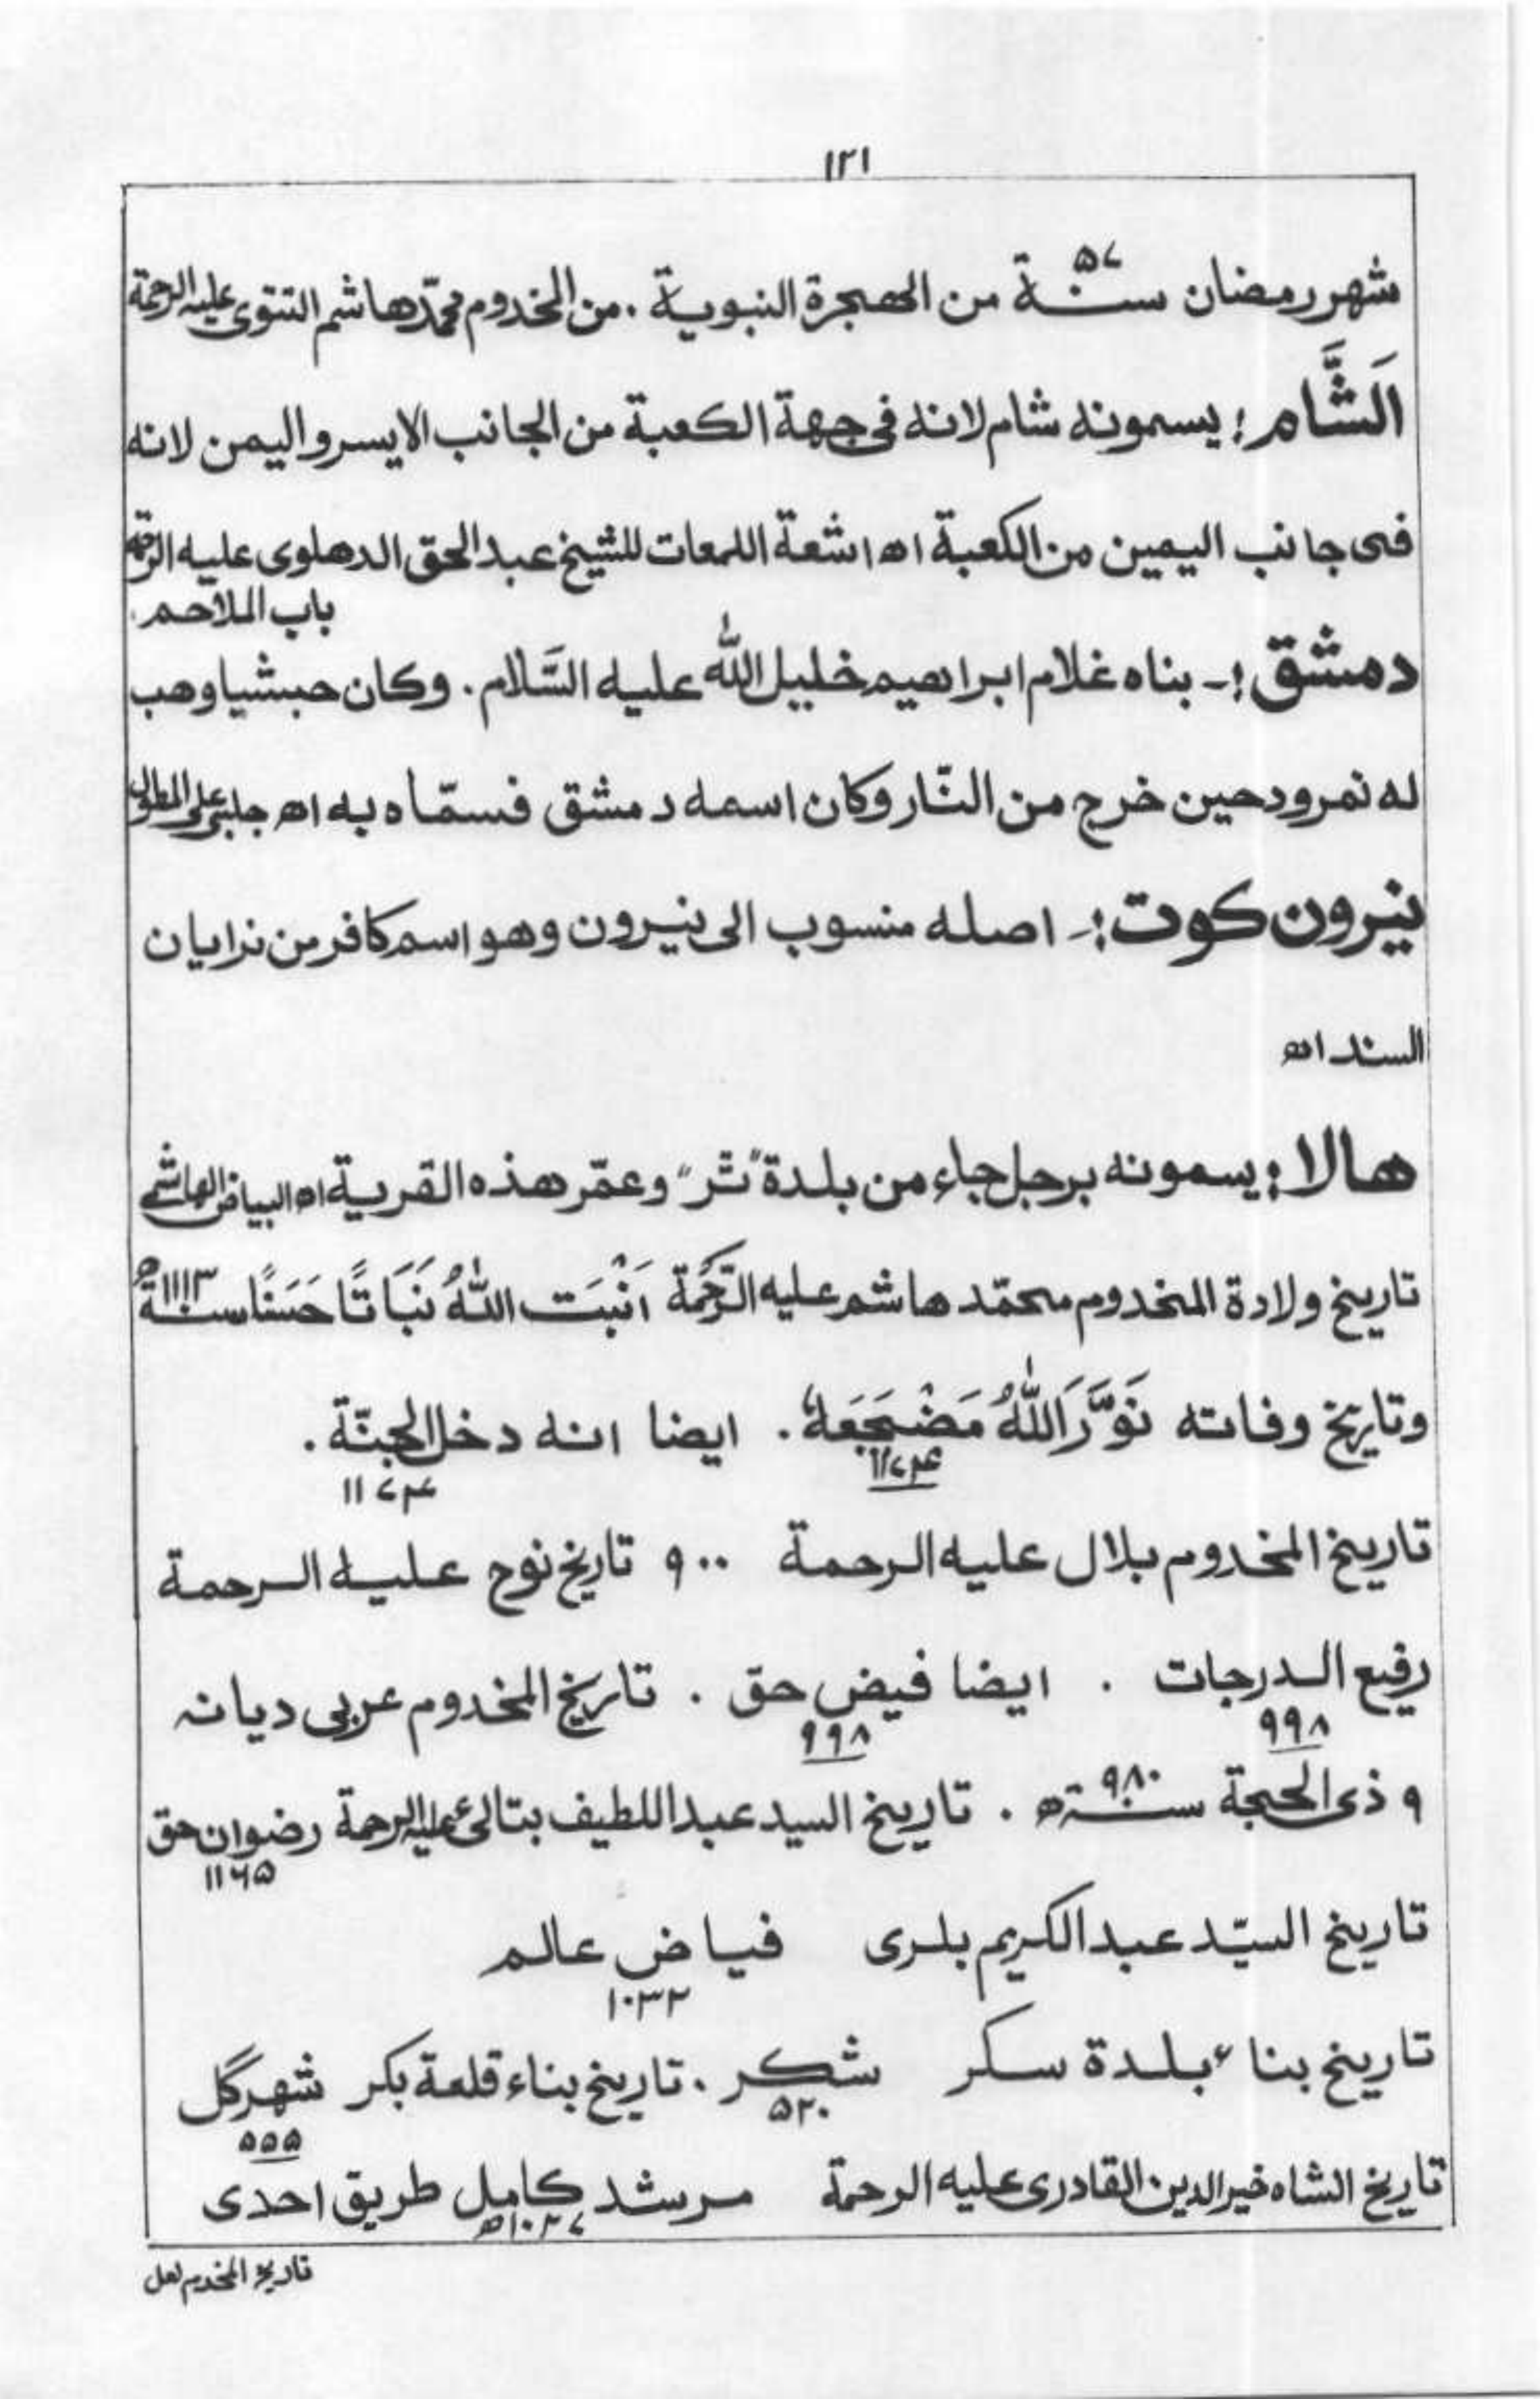 ١٢١
شهر رمضان سنة ٥٧ من الهجرة النبوية . من المخدوم محمّد هاشم التتوى عليه الرحمة
اَلشَّام ؛ يسمونه شام لانه فى جهة الكعبة من الجانب الايسر واليمن لانه
فى جانب اليمين من الكعبة اه اشعة اللمعات للشيخ عبد الحق الدهلوى عليه الرحمة
باب الملاحم .
دمشق ؛ ـ بناه غلام ابراهيم خليل الله عليه السَّلام . وكان حبشيا وهب
له نمرود حين خرج من النّار وكان اسمه دمشق فسمّاه به اه جلبى على المطول
نيرون كوت ؛ ـ اصله منسوب الى نيرون وهو اسم كافر من نرايان
السند اه
هالا ؛ يسمونه برجل جاء من بلدة "تر" وعمّر هذه القرية اه البياض الهاشمى
تاريخ ولادة المخدوم محمّد هاشم عليه الرَّحمة اَنْبَت اللّٰهُ نَبَاتًا حَسَنًا سنة ١١١٣ه
وتاريخ وفاته نَوَّرَ اللّٰهُ مَضْجَعَهٗ . ايضا انه دخل الجنّة .
١١٧۴ ١١٧۴
تاريخ المخدوم بلال عليه الرحمة ٩٠٠ تاريخ نوح عليه الرحمة
رفيع الدرجات . ايضا فيض حق . تاريخ المخدوم عربى ديانه
٩٩٨ ٩٩٨
٩ ذى الحجة سنة ٩٨٠ه . تاريخ السيد عبد اللطيف بتالئ عليه الرحمة رضوان حق
١١٦٥
تاريخ السيّد عبد الكريم بلرى فياض عالم
١٠٣٢
تاريخ بناء بلدة سكر شكر . تاريخ بناء قلعة بكر شهر گل
٥٢٠ ٥٥٥
تاريخ الشاه خير الدين القادرى عليه الرحمة مرشد كامل طريق احدى
١٠٢٧ه
تاريخ المخدوم لعل